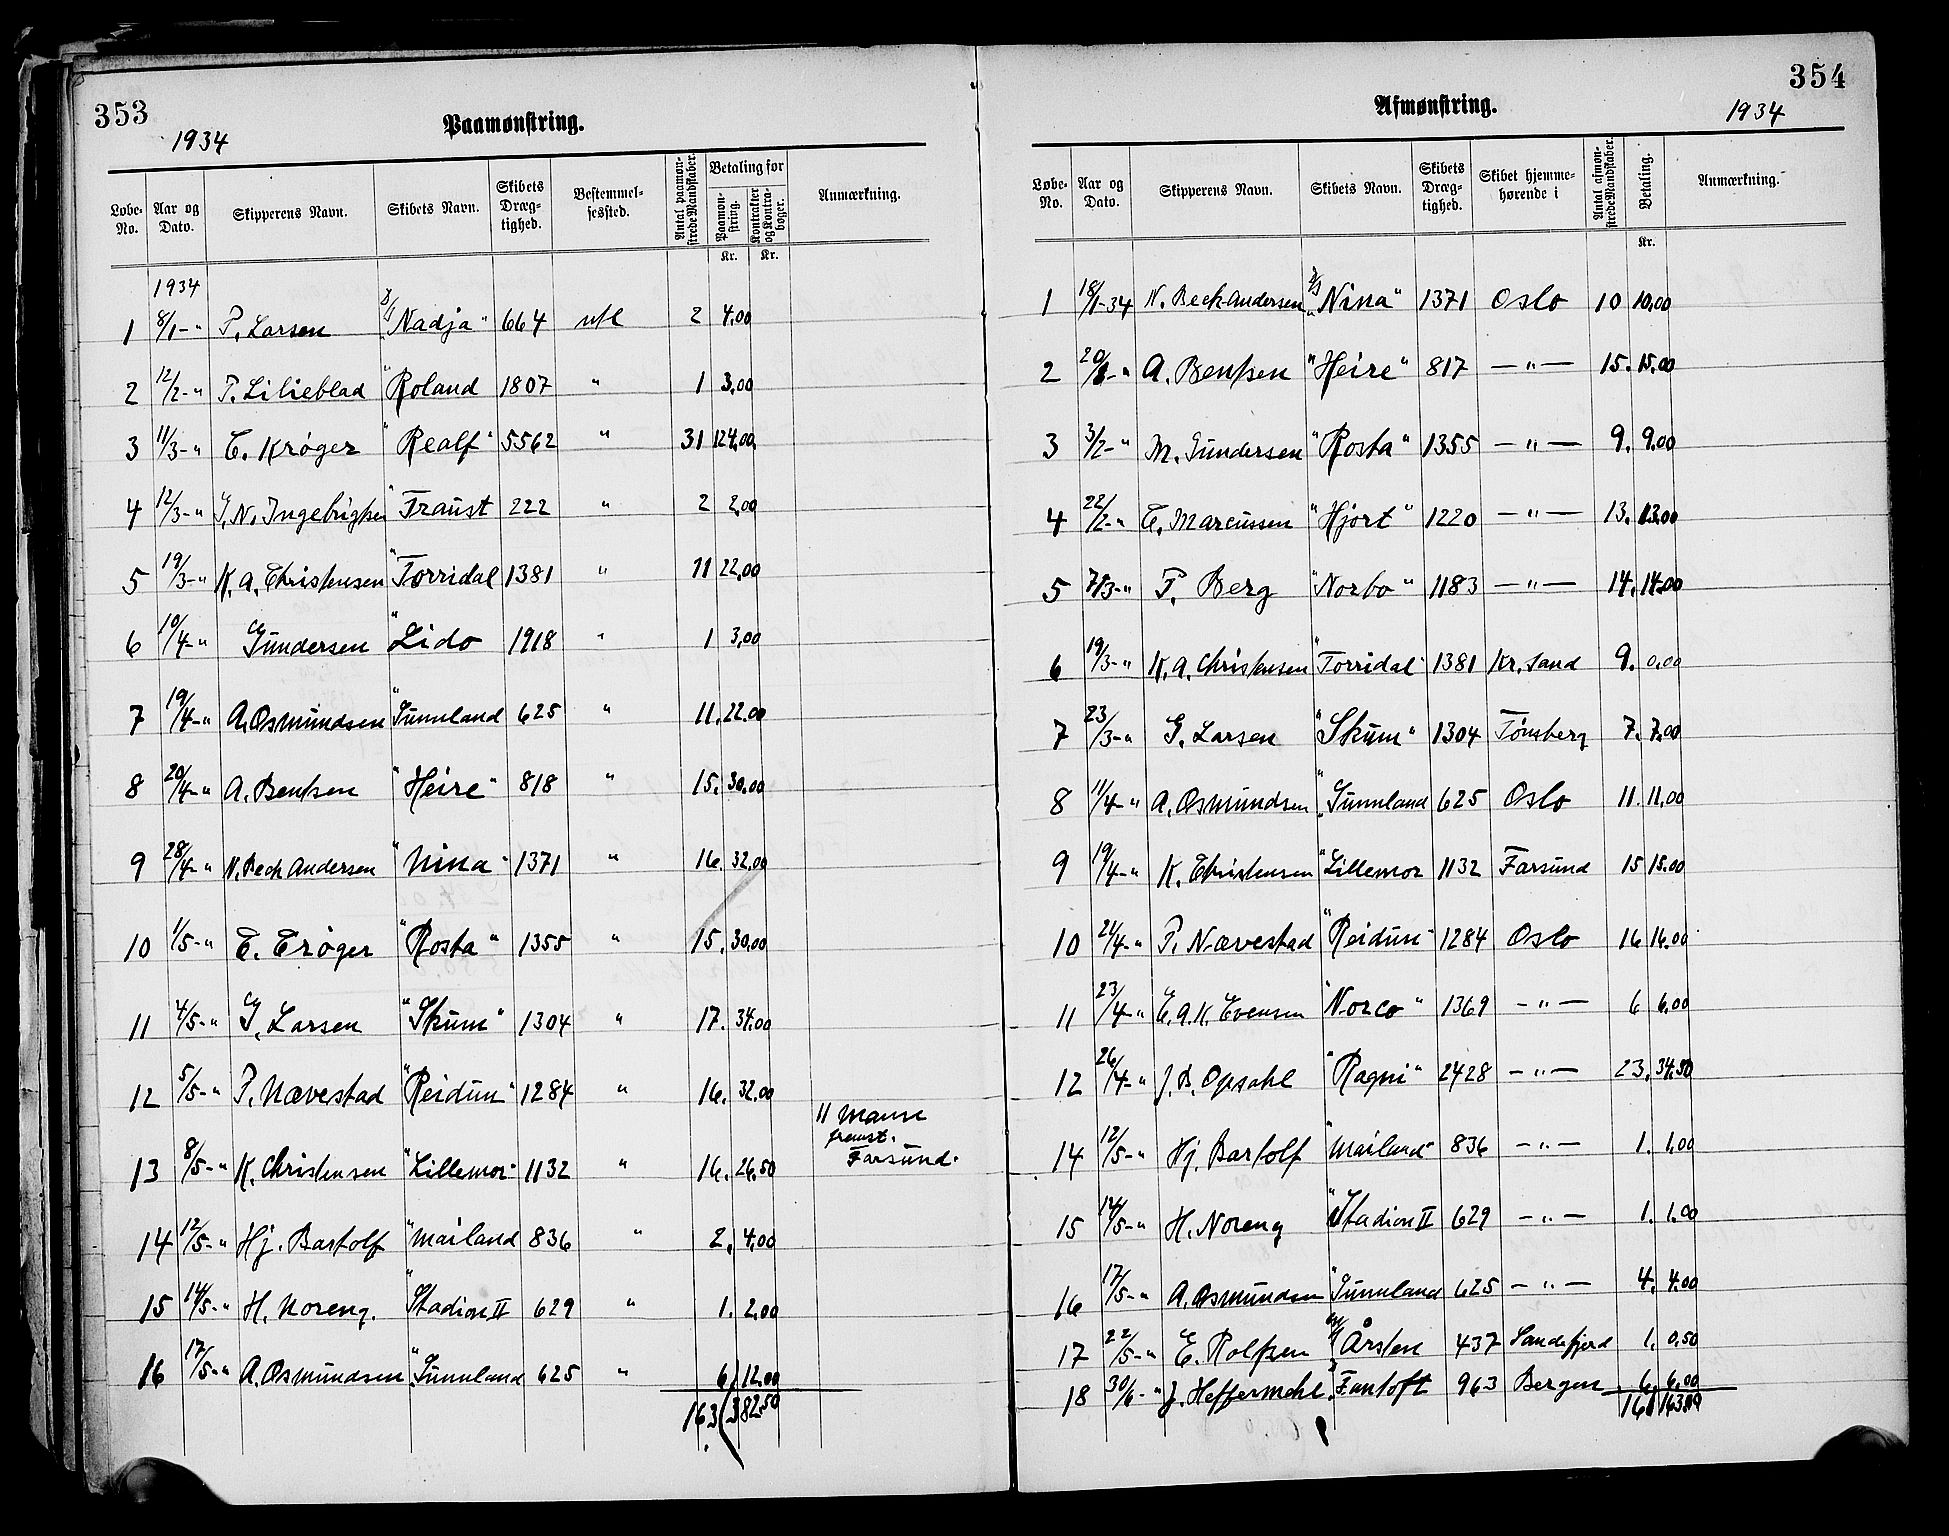 353
1934
Paamønstring.
Løbe-No. Aar og Dato. Skipperens Navn. Skibets Navn. Skibets Dræg-tighed. Bestemmel-sessted. Antal paamøn-strede Mandskaber. Betaling for Paamøn-string. Kontrakter og Kontra-bøger. Anmærkning.
Kr. Kr.
1934
1 8/1-" P. Larsen "Nadja" 664 utl 2 4,00
2 12/2-" P. Lilieblad "Roland 1807 " 1 3,00
3 11/3-" E. Krøger "Realf" 5562 " 31 124,00
4 12/3-" G. N. Ingebrigtsen "Fraust 222 " 2 2,00
5 19/3-" K. A. Christensen "Torridal 1381 " 11 22,00
6 10/4-" Gundersen "Lido 1918 " 1 3,00
7 19/4-" A. Osmundsen "Sunnland 625 " 11. 22,00
8 20/4-" A. Bentsen "Heire" 818 " 15. 30,00
9 28/4-" N. Bech Andersen "Nina" 1371 " 16. 32,00
10 1/5-" E. Erøger "Rosta" 1355 " 15. 30,00
11 4/5-" G. Larsen "Skum" 1304 " 17. 34,00
12 5/5-" P. Nævestad "Reidun" 1284 " 16. 32,00
11 Mann
fremst.
Farsund.
13 8/5-" K. Christensen "Lillemor" 1132 " 16. 26,50
14 12/5-" Hj. Bartolf "Mailand 836 " 2. 4,00
15 14/5-" H. Noreng. "Stadion II 629 " 1. 2,00
16 17/5-" A. Osmundsen "Sunnland 625 " 6 12,00
163 382,50
354
Afmønstring.
1934
Løbe-No. Aar og Dato. Skipperens Navn. Skibets Navn. Skibets Dræg-tighed. Skibet hjemme-hørende i Antal afmøn-strede Mandskaber. Betaling. Anmærkning.
Kr.
1 18/1-34 N. Bech-Andersen D/S "Nina" 1371 Oslo 10 10,00
2 20/1-" A. Bentsen "Heire" 817 —"— 15. 15,00
3 3/2-" M. Gundersen "Rosta" 1355 —"— 9. 9,00
4 22/2-" E. Marcussen "Hjort" 1220 —"— 13. 13,00
5 7/3-" P. Berg "Norbo" 1183 —"— 14. 14,00
6 19/3-" K. A. Christensen "Torridal" 1381 Kr.sand 9. 0,00
7 23/3-" G. Larsen "Skum" 1304 Tønsberg 7. 7,00
8 11/4-" A. Osmundsen "Sunnland 625 Oslo 11. 11,00
9 19/4-" K. Christensen "Lillemor 1132 Farsund 15 15,00
10 21/4-" P. Nævestad "Reidun" 1284 Oslo 16 16,00
11 23/4-" E. A. K. Evensen "Norco" 1369 —"— 6 6,00
12 26/4-" J. B. Opsahl "Ragni" 2428 —"— 23. 34,50
14 12/5-" Hj. Bartolf "Mailand" 836 —"— 1. 1,00
15 14/5-" H. Noreng "Stadion II 629 —"— 1. 1,00
16 17/5-" A. Osmundsen "Sunnland 625 —"— 4. 4,00
17 22/5-" E. Rolfsen Årsten 437 Sandefjord 1. 0,50
18 30/6-" J. Heffermehl "Fantoft 963 Bergen 6. 6,00
161 163,00